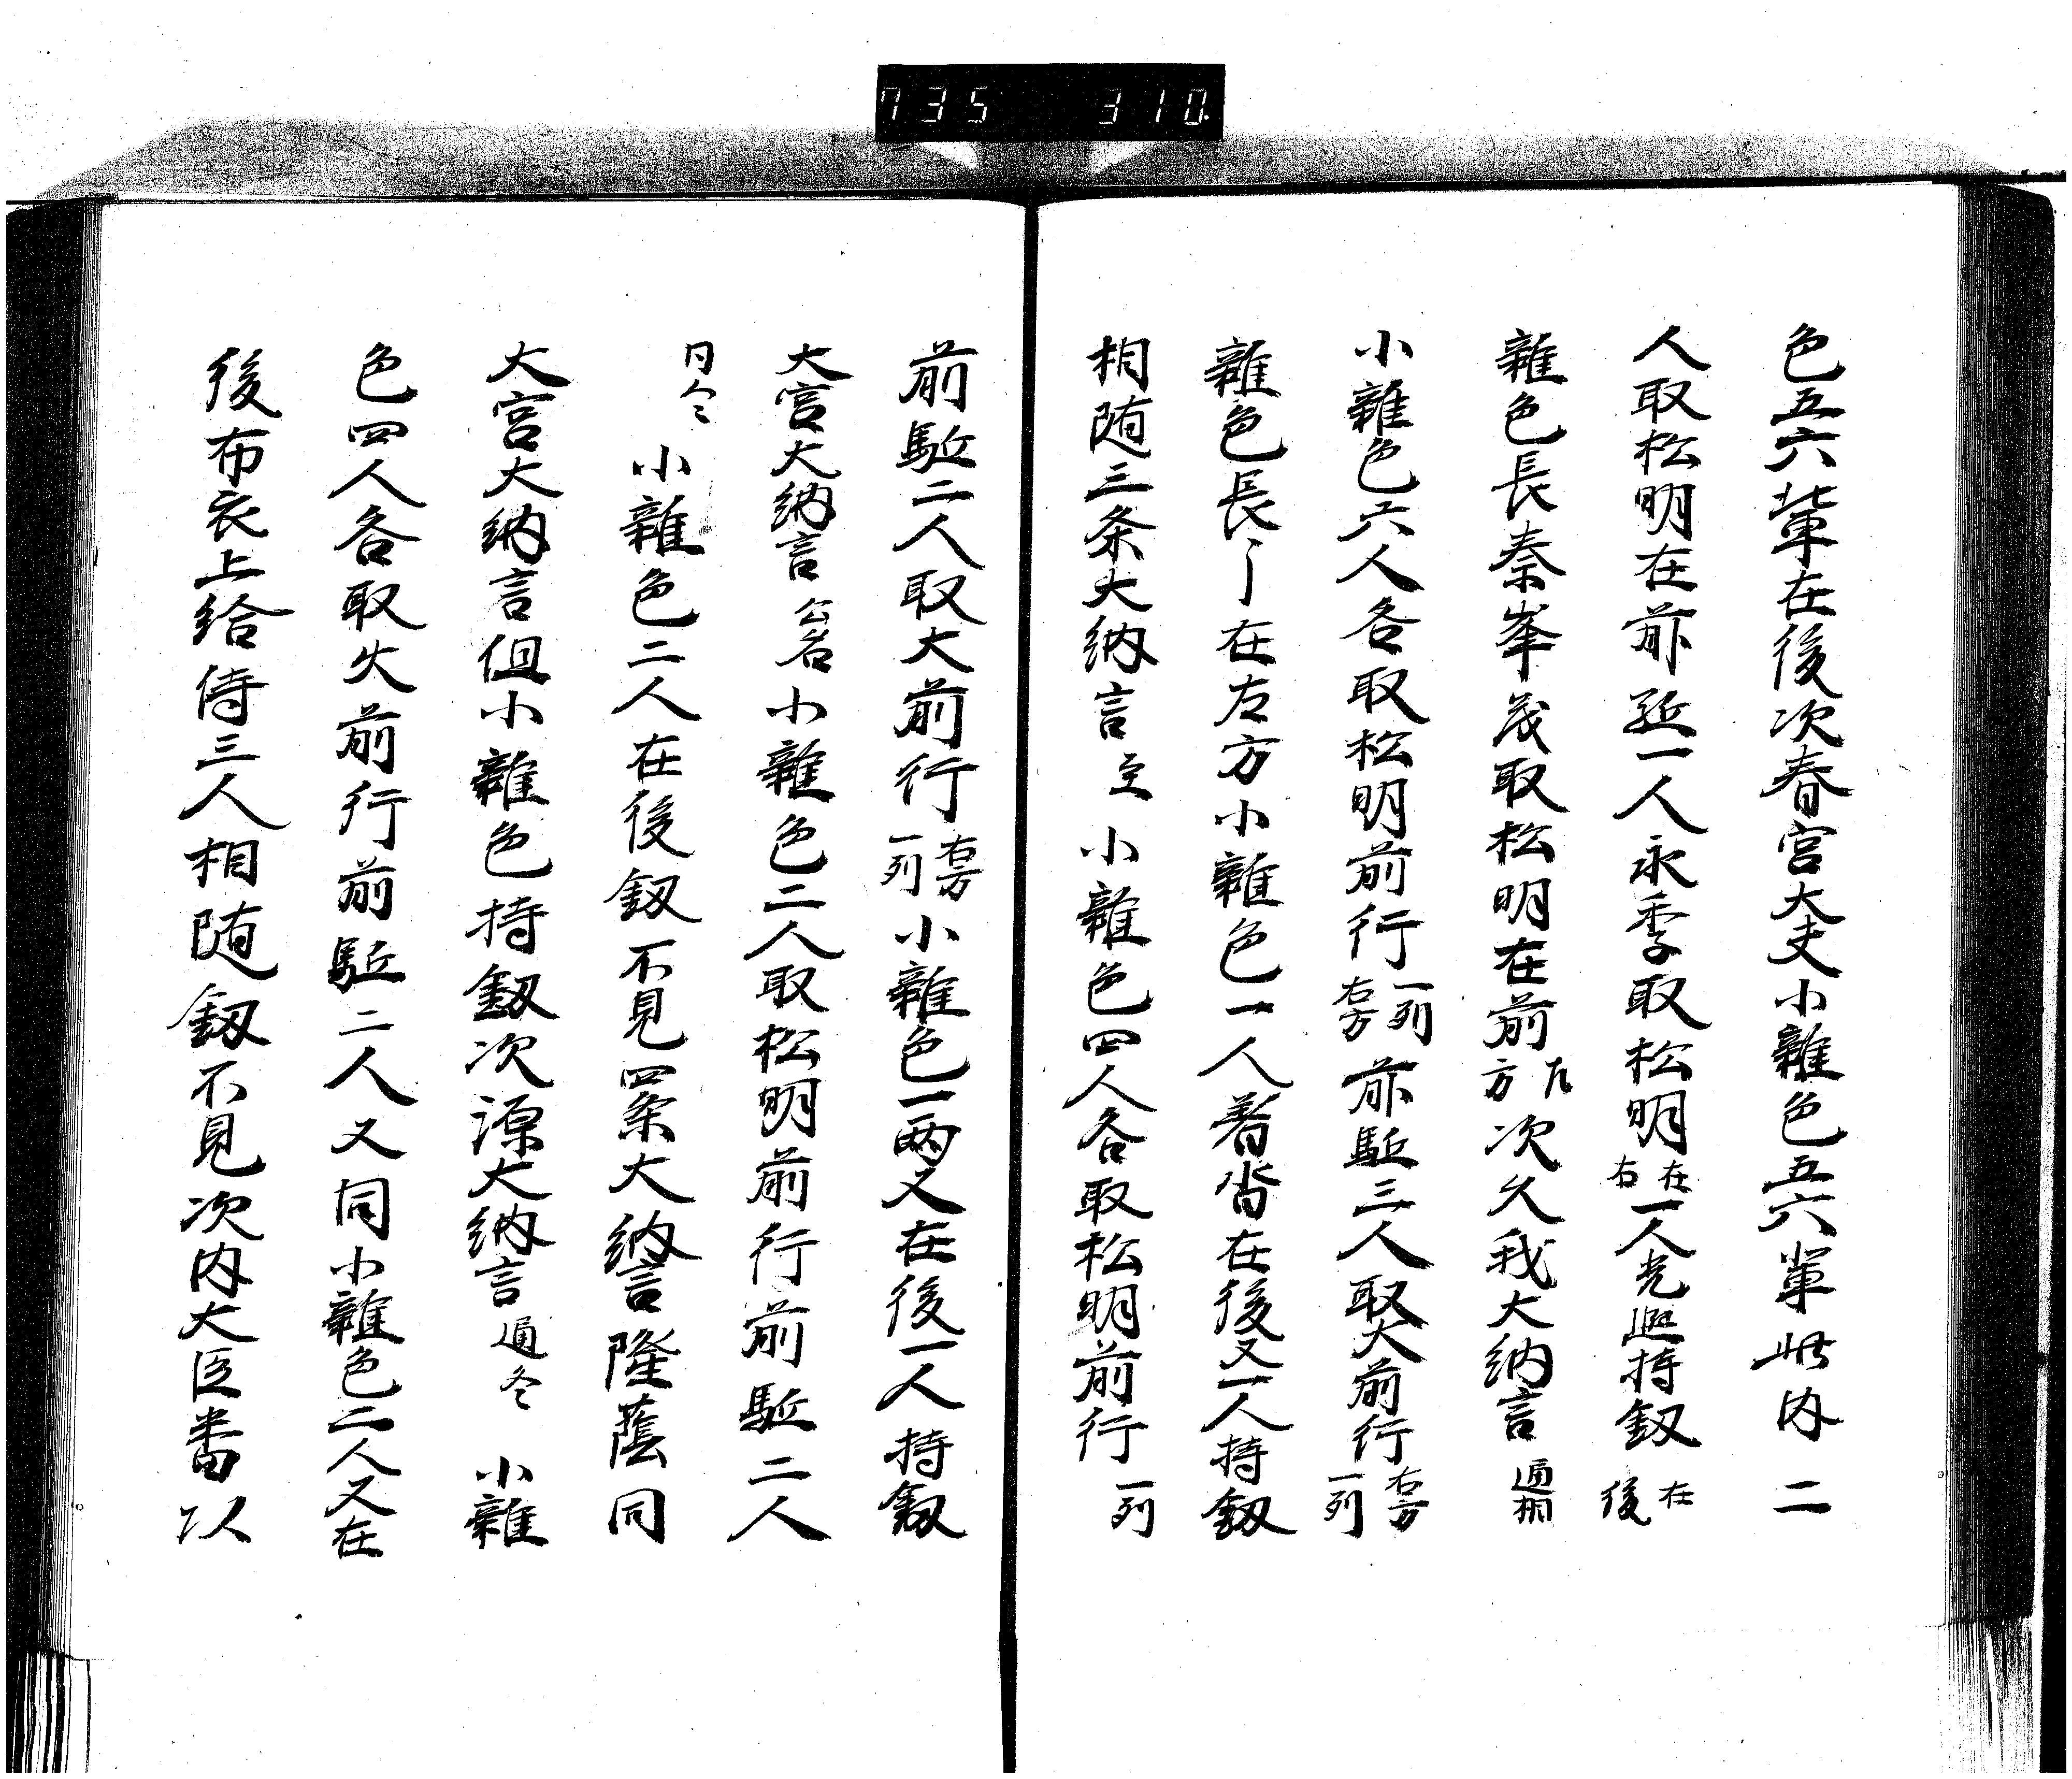 735 310
色五六輩在後次春宮大夫小雜色五六輩此内二
人取松明在前駈一人永季取松明在右一人光熈持釼在後
雜色長秦峯茂取松明在前左方次久我大納言通相
小雜色六人各取松明前行一列右方前駈三人取大前行右方一列
雜色長〻在左方小雜色一人著沓在後又一人持釼
相随三条大納言 小雜色四人各取松明前行一列
前駈二人取大前行右方一列小雜色一両又在後一人持釼
大宮大納言公名小雜色二人取松明前行前駈二人
同 小雜色二人在後釼不見四条大納言隆蔭同
大宮大納言但小雜色持釼次源大納言通冬 小雜
色四人各取火前行前駈二人又同小雜色二人又在
後布衣上給侍三人相随釼不見次内大臣番以